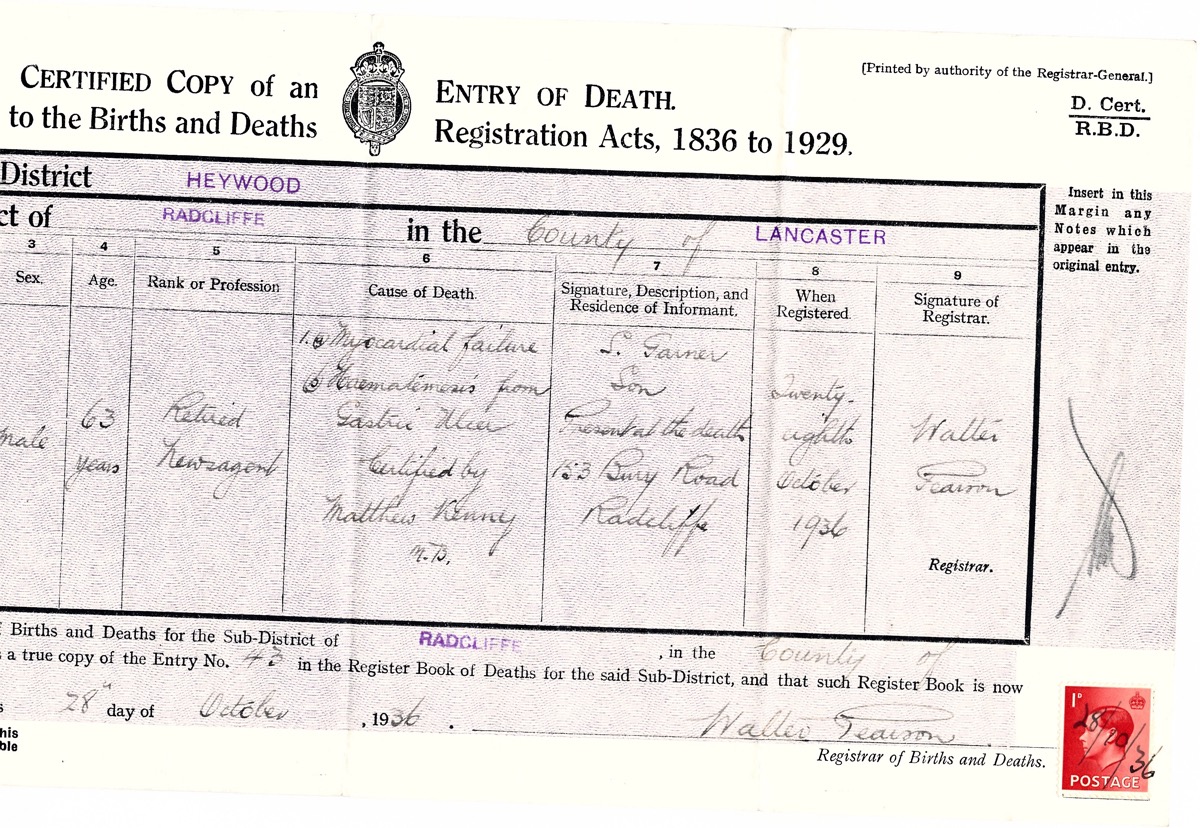 [Printed by authority of the Registrar-General.]
CERTIFIED COPY of an ENTRY OF DEATH.
D. Cert.
R.B.D.
to the Births and Deaths Registration Acts, 1836 to 1929.
District HEYWOOD
ct of RADCLIFFE in the County of LANCASTER
Insert in this
Margin any
Notes which
appear in the
original entry.
3 4 5 6 7 8 9
Sex. Age. Rank or Profession Cause of Death. Signature, Description, and Residence of Informant. When Registered. Signature of Registrar.
male
63
years
Retired
Newsagent
1.a Myocardial failure
b Haematemesis from
Gastric Ulcer
Certified by
Matthew Kenny
M.B.
S. Garner
Son
Present at the death
153 Bury Road
Radcliffe
Twenty-
eighth
October
1936
Walter
Fearson
Registrar.
f Births and Deaths for the Sub-District of RADCLIFFE, in the County of
s a true copy of the Entry No. 43 in the Register Book of Deaths for the said Sub-District, and that such Register Book is now
s 28" day of October, 1936. Walter Fearson
Registrar of Births and Deaths.
his
ble
1D
28/10/36
POSTAGE